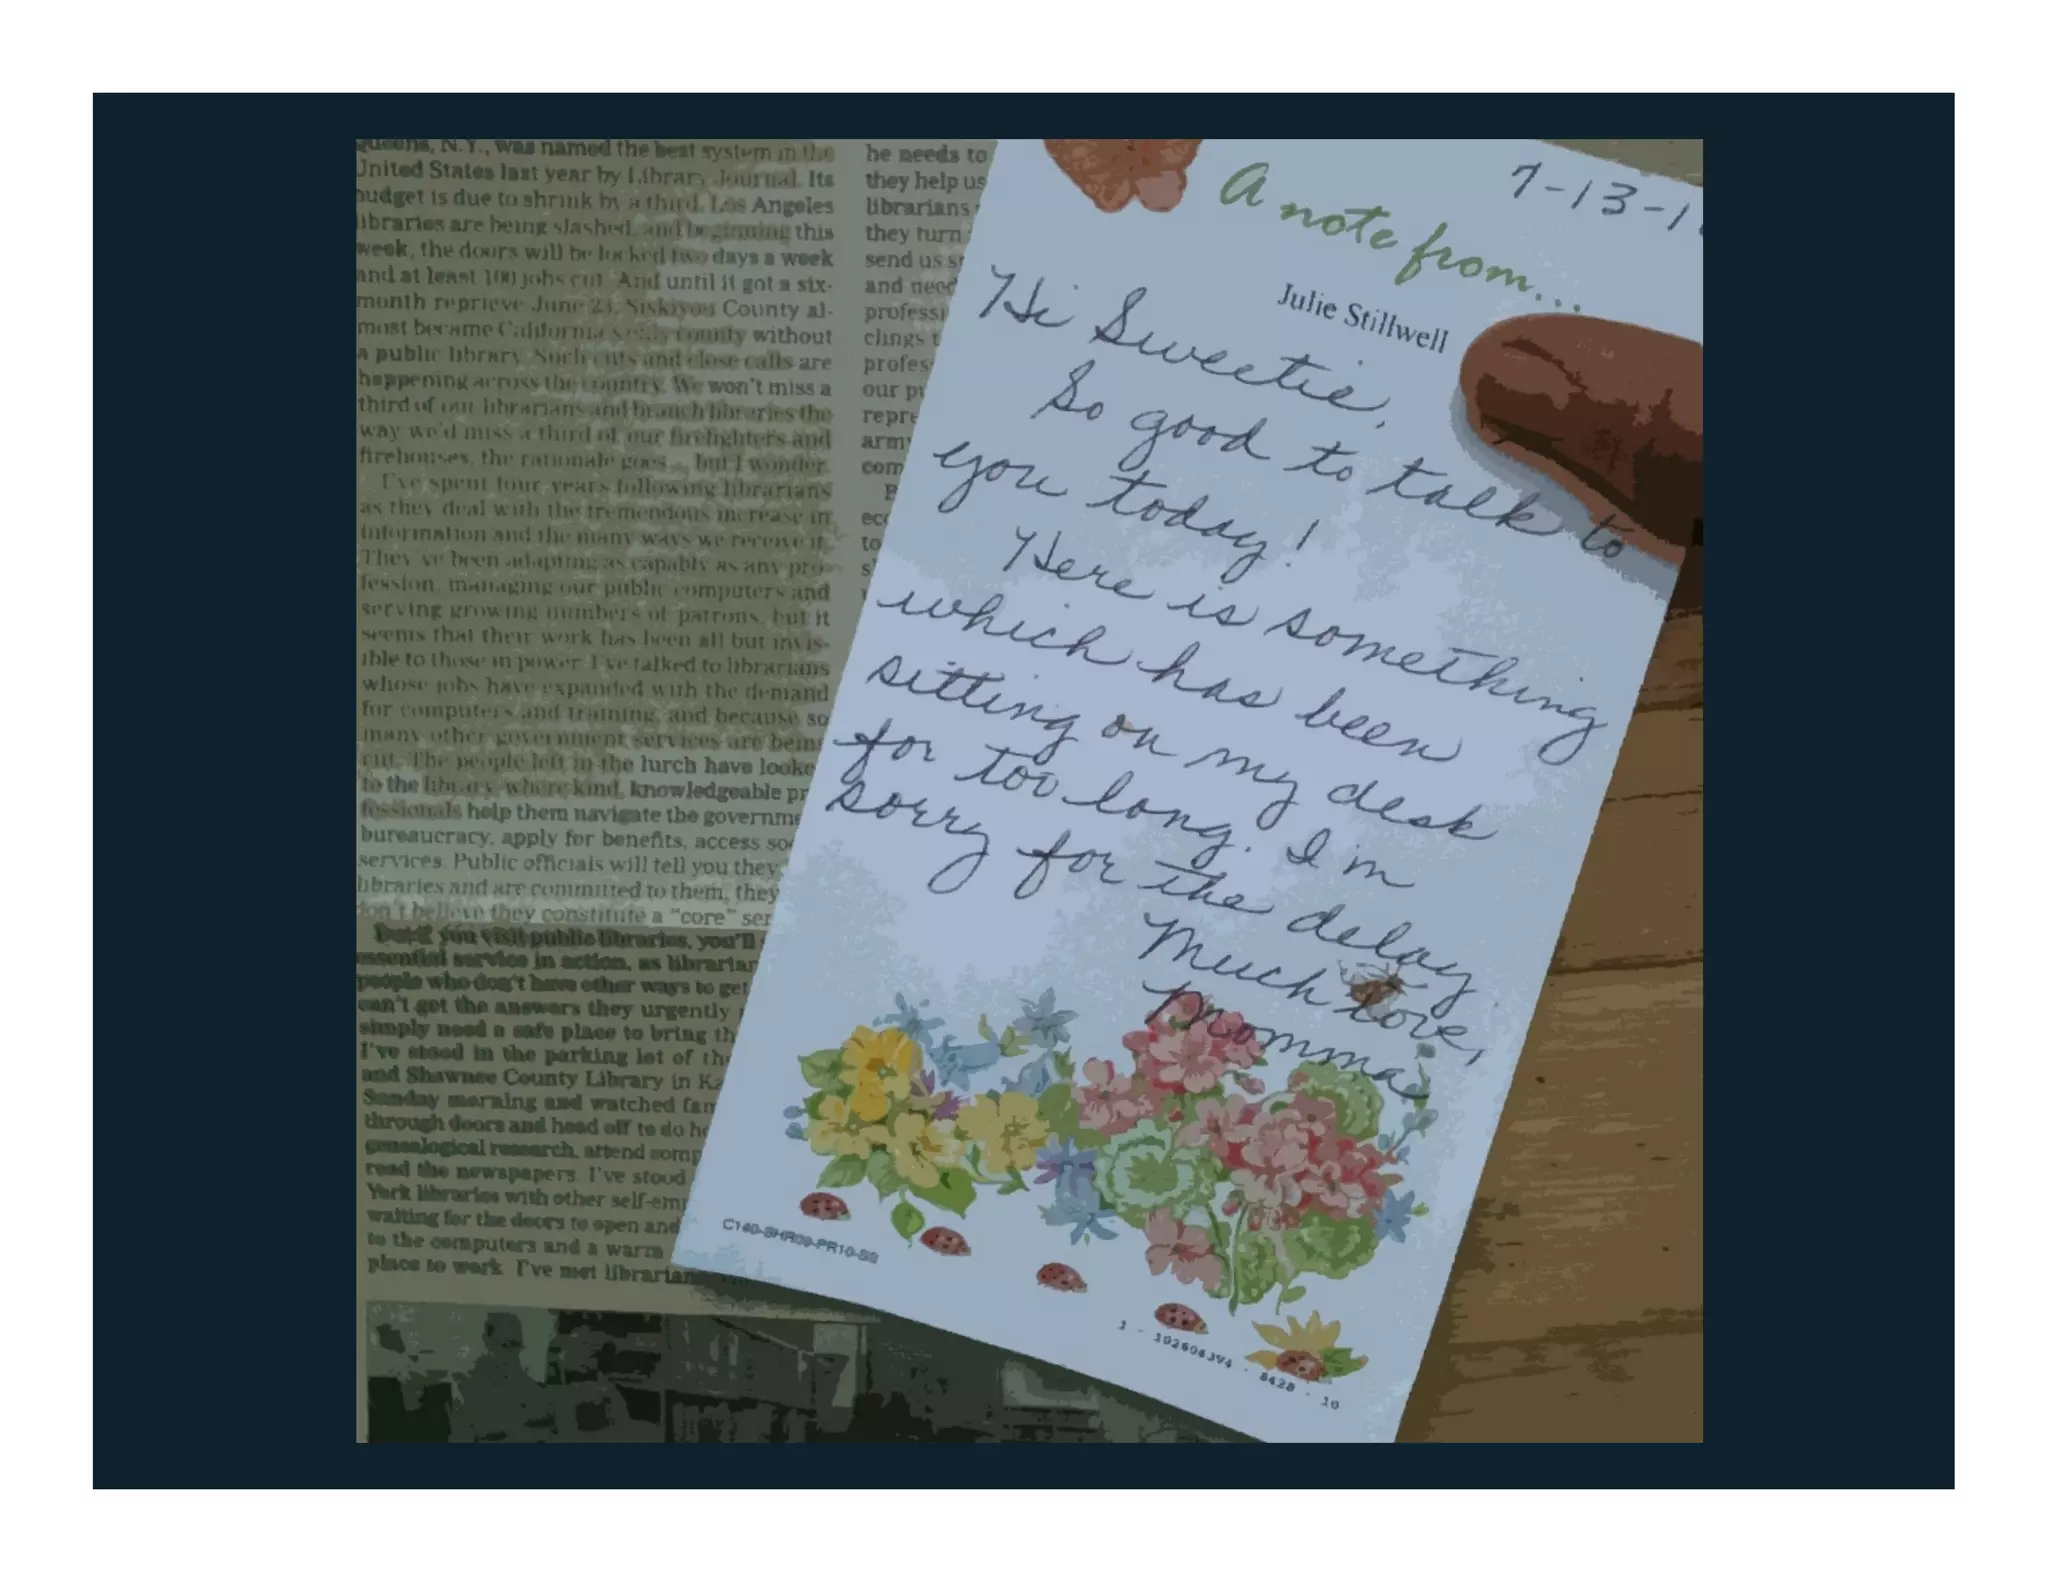 Queens, N.Y., was named the best system in the
United States last year by Library Journal. Its
budget is due to shrink by a third. Los Angeles
libraries are being slashed, and beginning this
week, the doors will be locked two days a week
and at least 100 jobs cut. And until it got a six-
month reprieve June 23, Siskiyou County al-
most became California's only county without
a public library. Such cuts and close calls are
happening across the country. We won't miss a
third of our librarians and branch libraries the
way we'd miss a third of our firefighters and
firehouses, the rationale goes ... but I wonder.
I've spent four years following librarians
as they deal with the tremendous increase in
information and the many ways we receive it.
They've been adapting as capably as any pro-
fession, managing our public computers and
serving growing numbers of patrons, but it
seems that their work has been all but invis-
ible to those in power. I've talked to librarians
whose jobs have expanded with the demand
for computers and training, and because so
many other government services are being
cut. The people left in the lurch have looke
to the library, where kind, knowledgeable pr
fessionals help them navigate the governme
bureaucracy, apply for benefits, access so
services. Public officials will tell you they
libraries and are committed to them, they
don't believe they constitute a "core" ser
But if you visit public libraries, you'll
essential service in action, as librarian
people who don't have other ways to get
can't get the answers they urgently
simply need a safe place to bring th
I've stood in the parking lot of th
and Shawnee County Library in Ka
Sunday morning and watched fam
through doors and head off to do ho
genealogical research, attend comp
read the newspapers. I've stood
York libraries with other self-emp
waiting for the doors to open and
to the computers and a warm
place to work. I've met librarians
he needs to
they help us
librarians
they turn
send us
and need
profess
clings t
profes
our pu
repre
army
com
eco
to
A note from...
7-13-1
Julie Stillwell
Hi Sweetie,
So good to talk to
you today!
Here is something
which has been
sitting on my desk
for too long. I'm
sorry for the delay.
Much love,
Momma
C140-SHR09-PR10-SS
1 - 1026063V4 - 8428 - 10